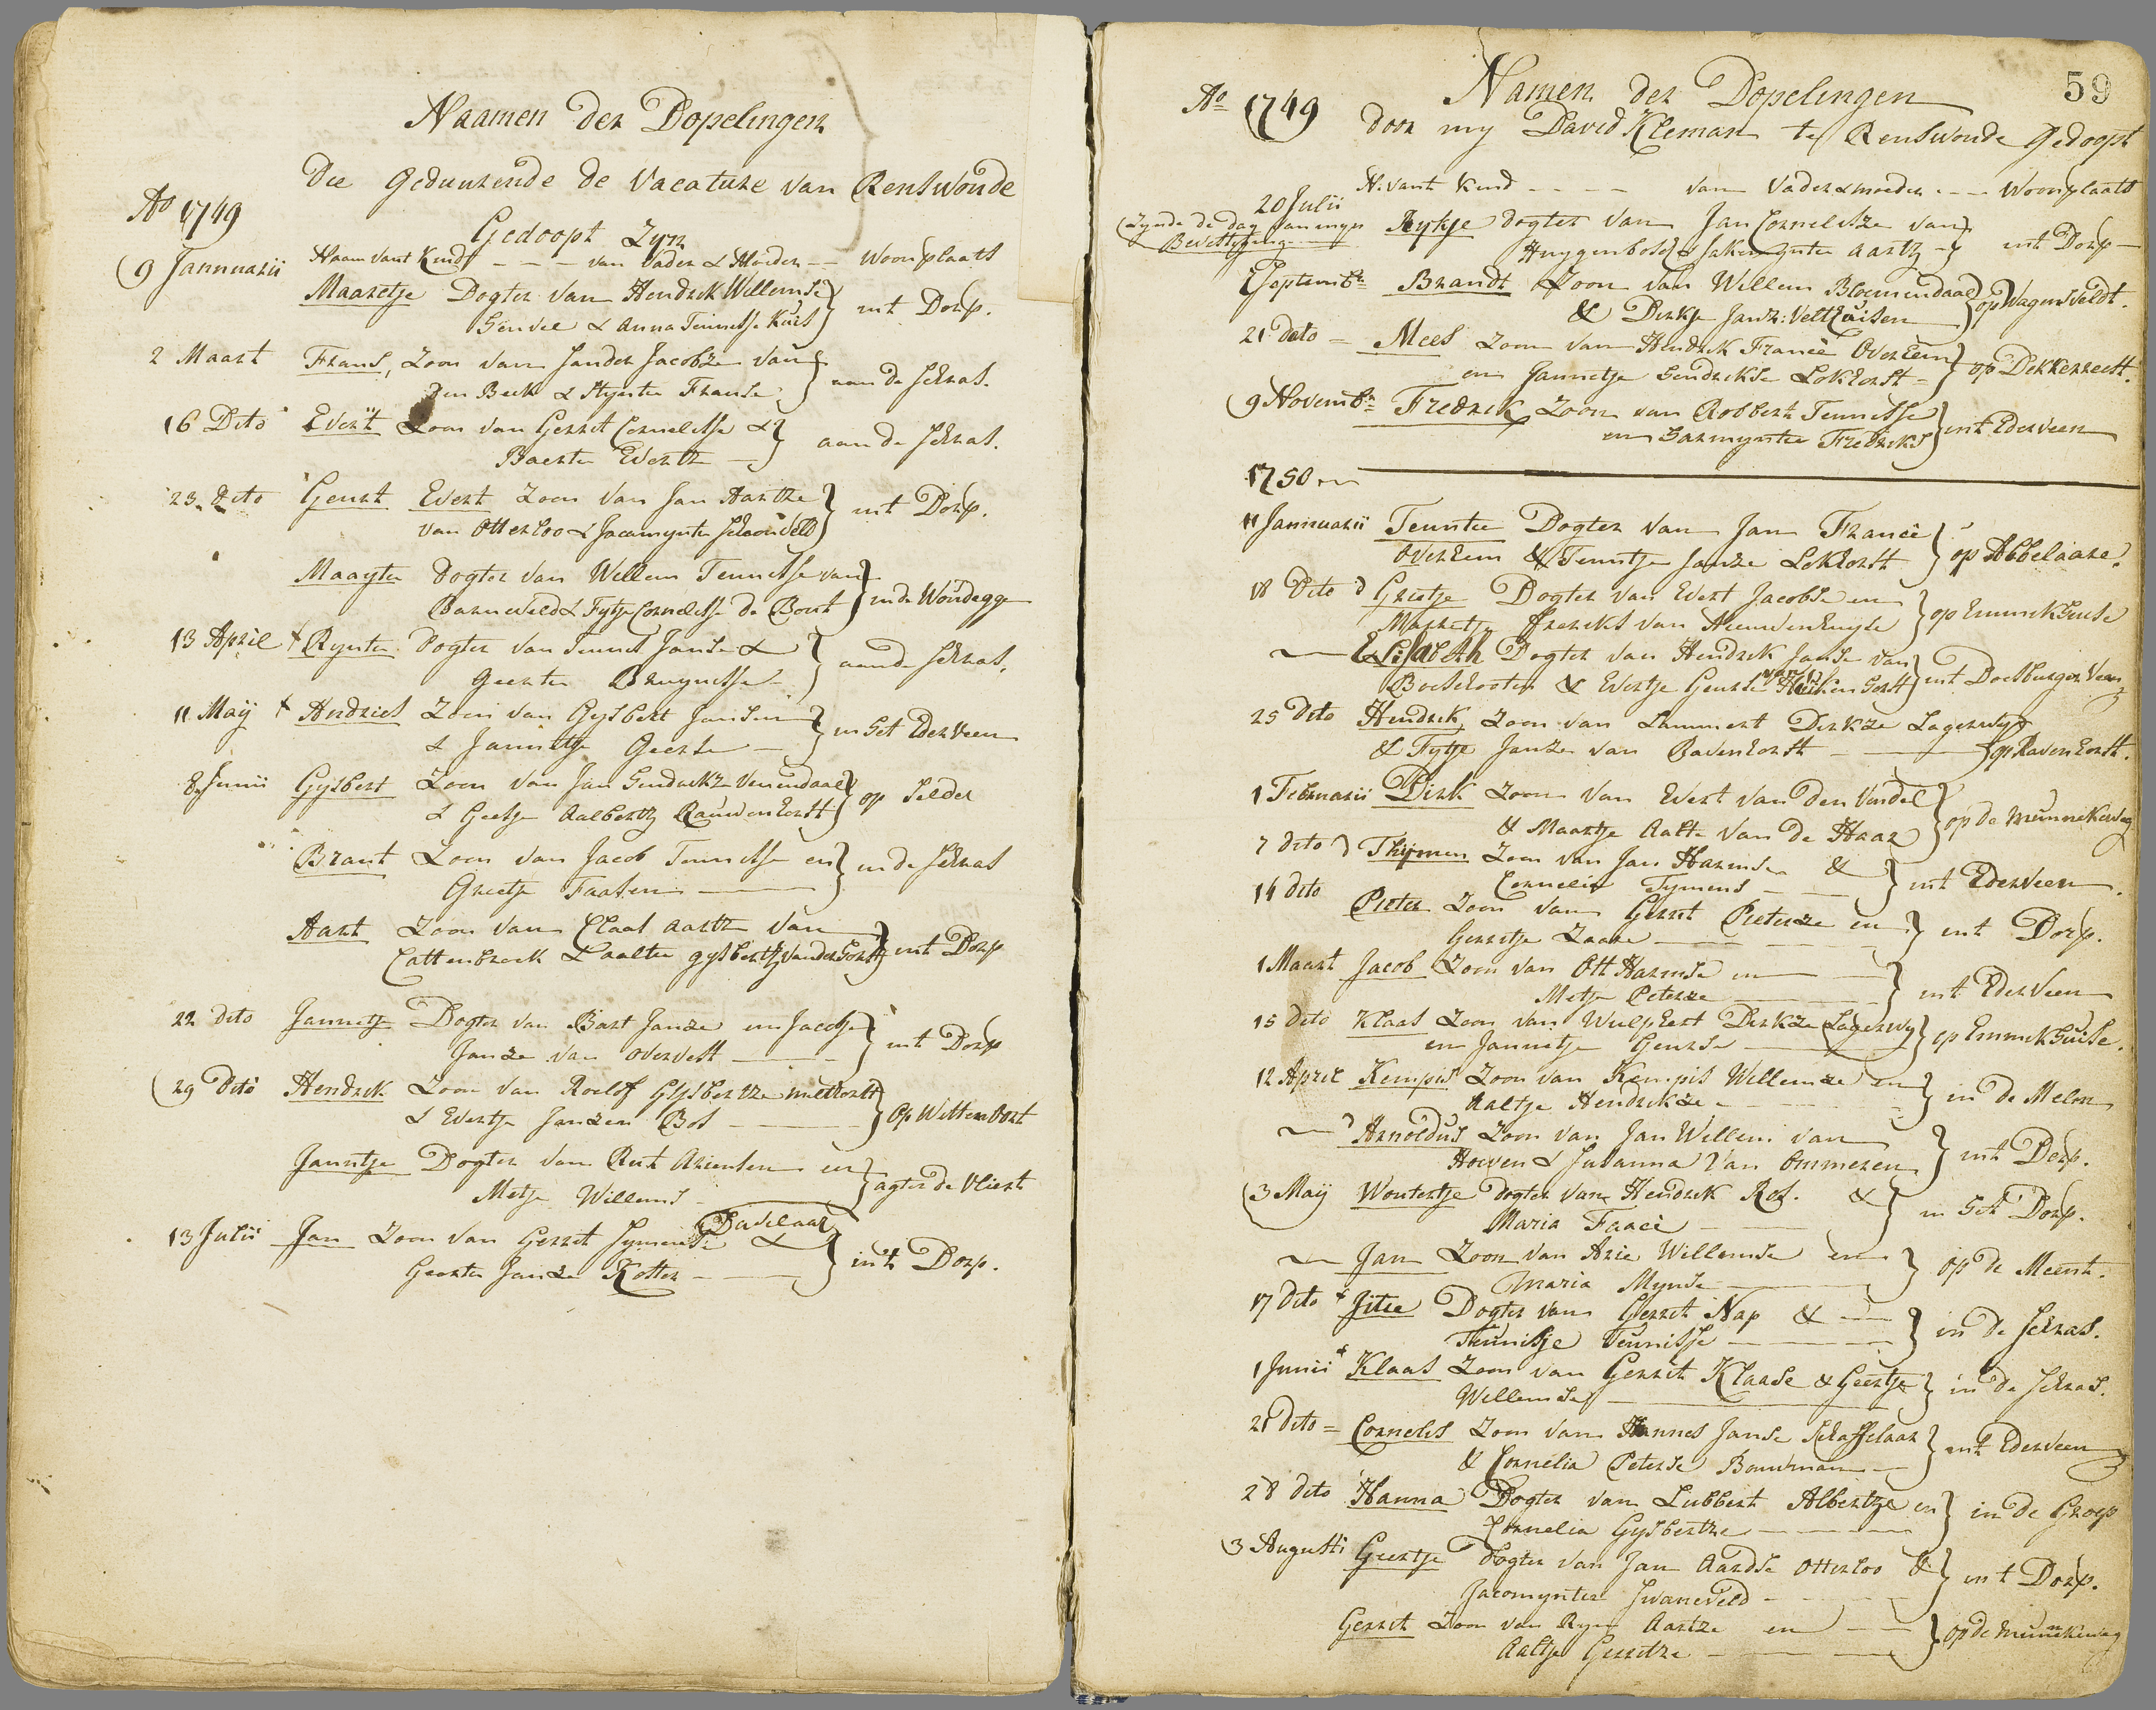 Naamen der Dopelingen
die Geduurende de Vacature van Renswoude
Ao 1749
Gedoopt Zyn
Naam vant Kindt - - - van Vader & Moeder -- Woonplaats
9 Jannuarii Maaretje Dogter van Hendrik Willemse
& Anna Teunisse int Dorp.
2 Maart Frans, Zoon van Sander Jacobze van
den Beek & Styntie Franse aan de Schras.
16 Dito Evert Zoon van Gerrit Cornelisse &
Baertie Evertz aan de Schras.
23 dito Geurt Evert Zoon van Jan Aartze
van Otterloo & Jacomyntie Schoonveld int Dorp.
Maaytie Dogter van Willem Teunisse van
Barneveld & Fytje Cornelisse de Bout in de Woudegge
13 April + Ryntie Dogter van Teunis Janse &
Geertie Bruynisse aan de Schras.
11 Maÿ + Andries Zoon van Gysbert Jansen
& Jannetje Geerse in het Ederveen
8 Junii Gysbert Zoon van Jan Hendrickze Veenendaal
& Geetje Aalbertz Rauwenhorst op Selder
Brant Zoon van Jacob Teunisse en
Greetje Faasen in de Schras
Aart Zoon van Claas Aartze van
Cattenbroek & Aaltie Gysbertz van der Horst int Dorp
22 dito Jannetje Dogter van Bart Janze en Jacobje
Janze van Overvest int Dorp
29 Dito Hendrik Zoon van Roelof Gysbertze
& Evertje Janzen Bos Op Wittenoort
Janntje Dogter van Rut Ariensen en
Metje Willems agter de Vliert
13 Julii Jan Zoon van Gerrit Symense Daselaar &
Geertie Janze Kotter int Dorp.
59
Ao 1749 Namen der Dopelingen
door my David Kleman te Renswoude Gedoopt
N. vant Kind - - - - van Vader & moeder - - - Woonplaats
20 Julii
(Zynde de dag van myn
Bevestiging
Rykje dogter van Jan Cornelisze van
Huygenbosch & Aartz int Dorp
Septembr Brandt Zoon van Willem Bloemendaal
& Dirkje Janz: Velthuisen op Wagensveldt.
21 dato = Mees Zoon van Hendrik Francè Overeem
en Jannetje Hendrikse Lokhorst op Dekkersreest.
9 Novembr Fredrik Zoon van Robbert Teunisse
en Harmyntie Fredriks int Ederveen
1750
11 Januarii Teuntie Dogter van Jan Francè
Overeem & Teuntje Janze Lokhorst op Abbelaare.
18 Dito Grietje Dogter van Evert Jacobse en
Maretje Freriks van Nieuwenhuyse op Emmikhuise
Elisabeth Dogter van Hendrik Janse van
Boeschooten & Evertje Geurse van Huikenhorst int Doesburger Veen
25 Dito Hendrik Zoon van Lammert Dirkze Lagerwy
& Fytje Janze van Ravenhorst op Ravenhorst.
1 Februarii Dirk Zoon van Evert van den Vendel
& Maartje Aalte van de Haar op de munnikeweg
7 dito Thijmen Zoon van Jan Harmse &
Cornelia Tymens int Ederveen.
14 dito Pieter Zoon van Gerrit Pieterze en
Gerritje Zaare int Dorp.
1 Maart Jacob Zoon van Ott Harmse en
Metje Peterze int Ederveen
15 Dito Klaas Zoon van Wulphert Dirkze Lagerwy
en Jannetje Geurse op Emmikhuise.
12 April Kempis Zoon van Kempis Willemze en
Aaltje Hendrikze in de Melon
Arnoldus Zoon van Jan Willem van
Hoeven & Susanna van Ommeren int Dorp.
3 Maÿ Woutertje dogter van Hendrik Ros. &
Maria Faacè in het Dorp.
Jan Zoon van Arie Willemse en
Maria Mynse op de Meent.
17 dito Jitie Dogter van Gerrit Nap &
Teunisje Teunisse in de Schras.
1 Junii Klaas Zoon van Gerrit Klaase & Geertje
Willemse in de Schras.
21 dito = Cornelis Zoon van Hannes Janse Schaffelaar
& Cornelia Peterse Bouwman int Ederveen
28 dito Hanna Dogter van Lubbert Albertze en
Cornelia Gysbertze in de Groep
3 Augusti Geertje dogter van Jan Aardse Otterloo &
Jacomyntie Swaneveld int Dorp.
Gerrit Zoon van Ryn Aartze en
Aaltje Gerritze op de munnikeweg